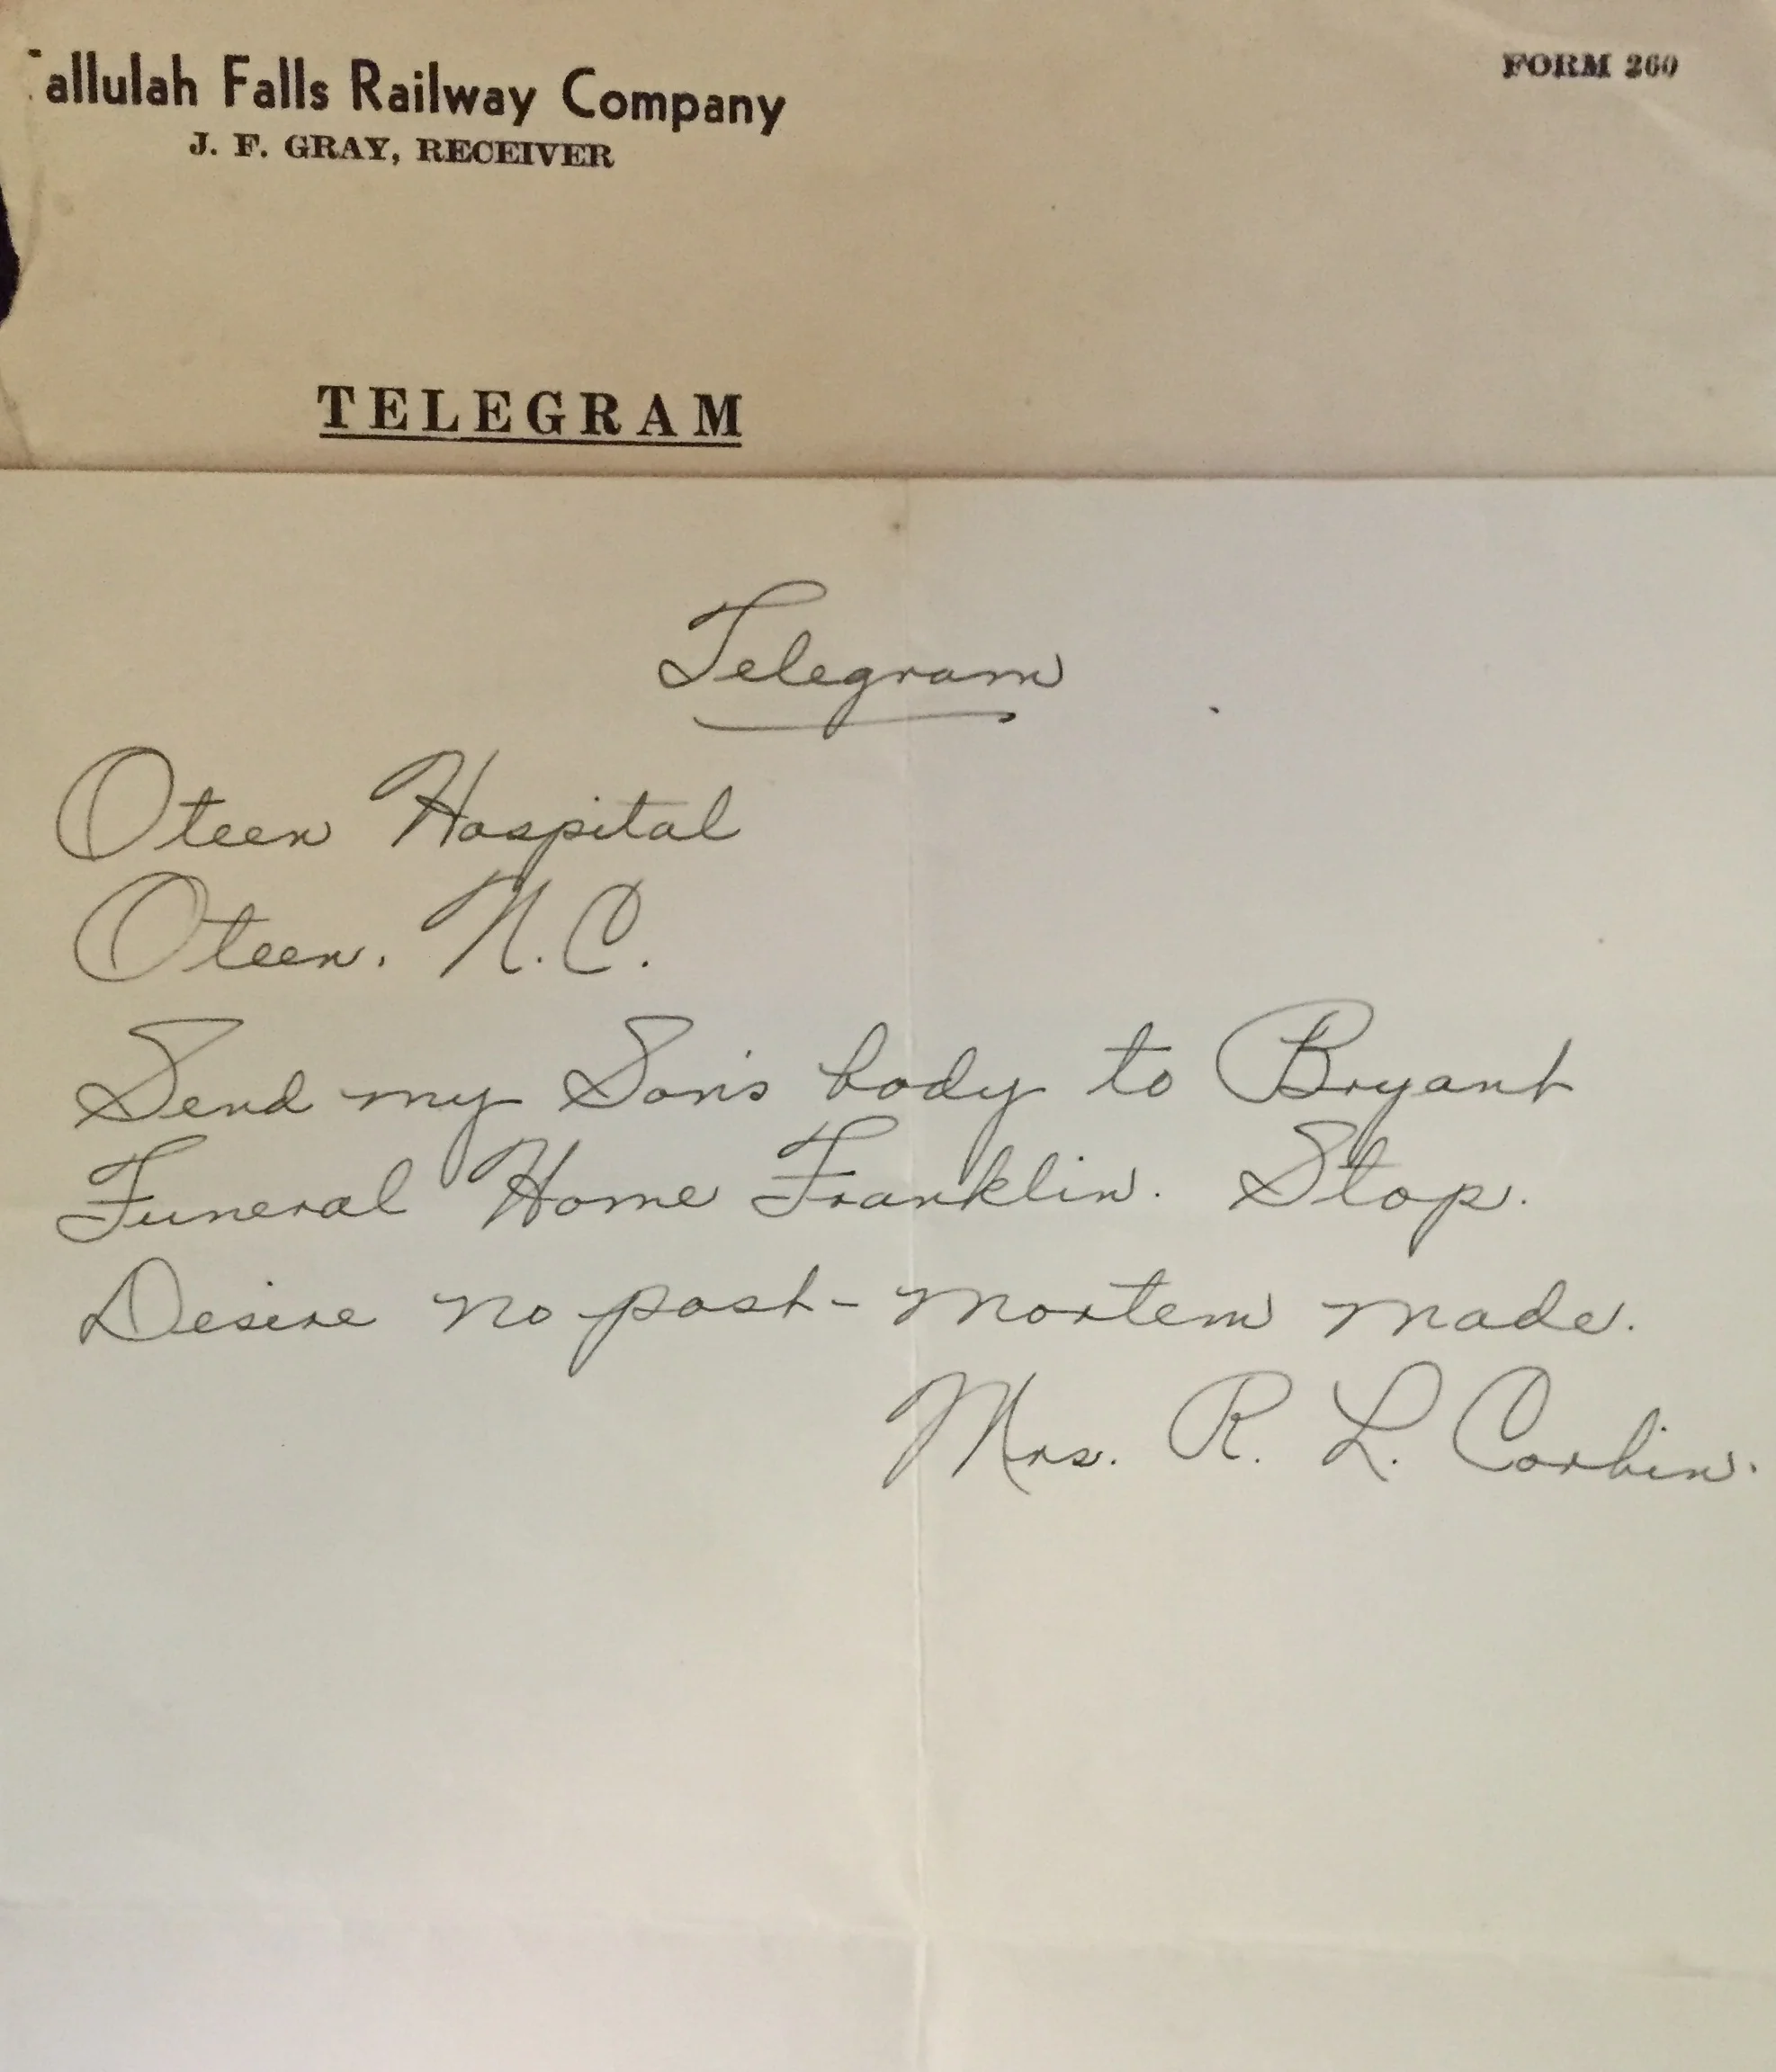 Tallulah Falls Railway Company
FORM 260
J. F. GRAY, RECEIVER
TELEGRAM
Telegram
Oteen Hospital
Oteen. N.C.
Send my Son's body to Bryant
Funeral Home Franklin. Stop.
Desire no post-mortem made.
Mrs. R. L. Corbin.